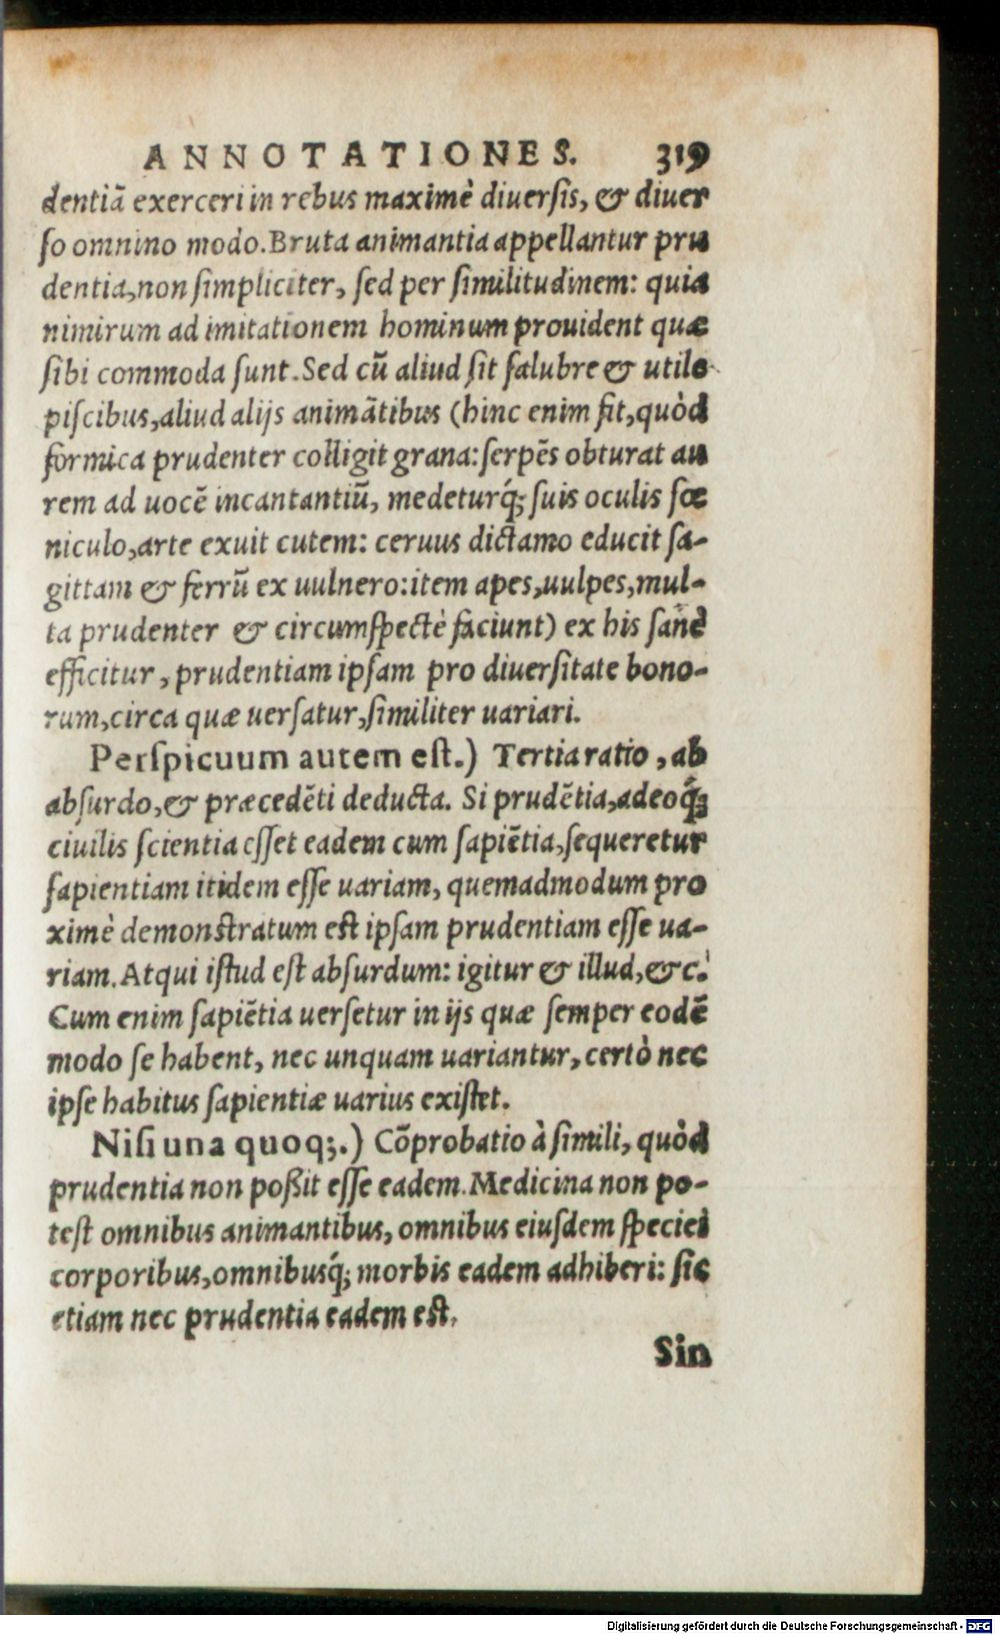 ANNOTATIONES. 319
dentiā exerceri in rebus maximè diuerſis, & diuer
ſo omnino modo. Bruta animantia appellantur pru
dentia, non ſimpliciter, ſed per ſimilitudinem: quia
nimirum ad imitationem hominum prouident quæ
ſibi commoda ſunt. Sed cū aliud ſit ſalubre & utile
piſcibus, aliud alijs animātibus (hinc enim fit, quòd
formica prudenter colligit grana: ſerpēs obturat au
rem ad uocē incantantiū, medeturq́; ſuis oculis fœ
niculo, arte exuit cutem: ceruus dictamo educit ſa-
gittam & ferrū ex uulnero: item apes, uulpes, mul-
ta prudenter & circumſpectè faciunt) ex his ſanè
efficitur, prudentiam ipſam pro diuerſitate bono-
rum, circa quæ uerſatur, ſimiliter uariari.
Perſpicuum autem eſt.) Tertia ratio, ab
abſurdo, & præcedēti deducta. Si prudētia, adeoq́;
ciuilis ſcientia eſſet eadem cum ſapiētia, ſequeretur
ſapientiam itidem eſſe uariam, quemadmodum pro
ximè demonſtratum eſt ipſam prudentiam eſſe ua-
riam. Atqui iſtud eſt abſurdum: igitur & illud, &c.
Cum enim ſapiētia uerſetur in ijs quæ ſemper eodē
modo ſe habent, nec unquam uariantur, certò nec
ipſe habitus ſapientiæ uarius exiſtet.
Niſi una quoq;.) Cōprobatio à ſimili, quòd
prudentia non poßit eſſe eadem. Medicina non po-
teſt omnibus animantibus, omnibus eiuſdem ſpeciei
corporibus, omnibusq́; morbis eadem adhiberi: ſic
etiam nec prudentia eadem eſt.
Sin
Digitalisierung gefördert durch die Deutsche Forschungsgemeinschaft - DFG